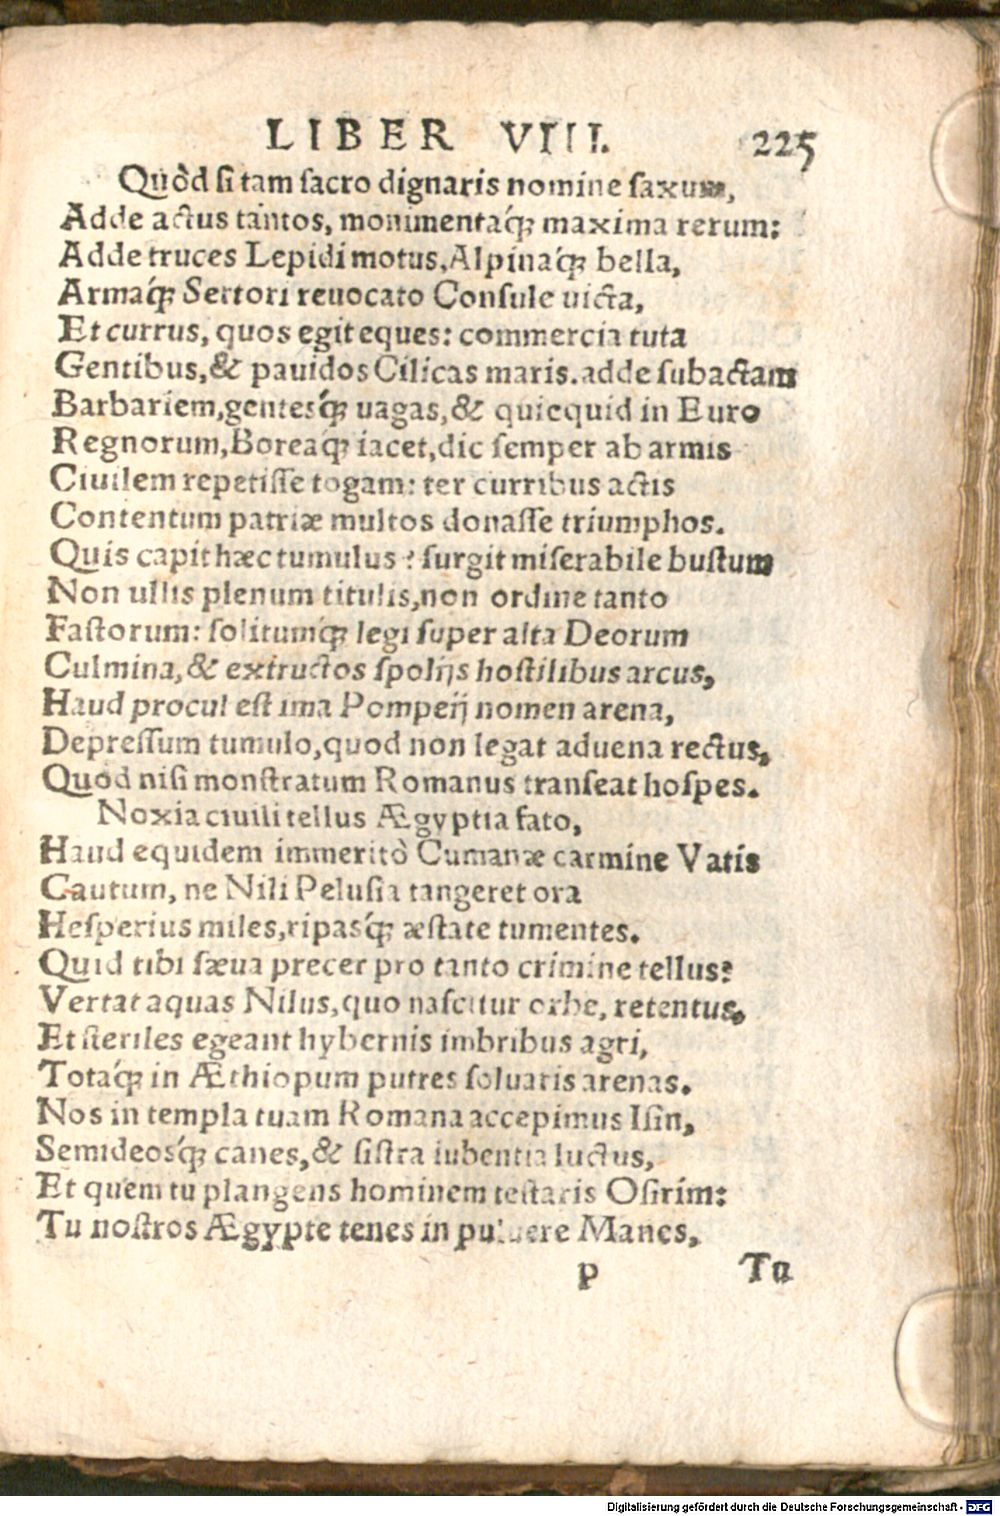 LIBER VIII. 225
Quòd si tam sacro dignaris nomine saxum,
Adde actus tantos, monimentaq́; maxima rerum:
Adde truces Lepidi motus, Alpinaq́; bella,
Armaq́; Sertori reuocato Consule uicta,
Et currus, quos egit eques: commercia tuta
Gentibus, & pauidos Cilicas maris. adde subactam
Barbariem, gentesq́; uagas, & quicquid in Euro
Regnorum, Boreaq; iacet, dic semper ab armis
Ciuilem repetisse togam: ter curribus actis
Contentum patriæ multos donasse triumphos.
Quis capit hæc tumulus? surgit miserabile bustum
Non ullis plenum titulis, non ordine tanto
Fastorum: solitumq́; legi super alta Deorum
Culmina, & extructos spolijs hostilibus arcus,
Haud procul est ima Pompeij nomen arena,
Depressum tumulo, quod non legat aduena rectus,
Quòd nisi monstratum Romanus transeat hospes.
Noxia ciuili tellus Ægyptia fato,
Haud equidem immeritò Cumanæ carmine Vatis
Cautum, ne Nili Pelusia tangeret ora
Hesperius miles, ripasq́; æstate tumentes.
Quid tibi sæua precer pro tanto crimine tellus?
Vertat aquas Nilus, quo nascitur orbe, retentus,
Et steriles egeant hybernis imbribus agri,
Totaq́; in Æthiopum putres soluaris arenas.
Nos in templa tuam Romana accepimus Isin,
Semideosq́; canes, & sistra iubentia luctus,
Et quem tu plangens hominem testaris Osirim:
Tu nostros Ægypte tenes in puluere Manes,
p Tu
Digitalisierung gefördert durch die Deutsche Forschungsgemeinschaft - DFG